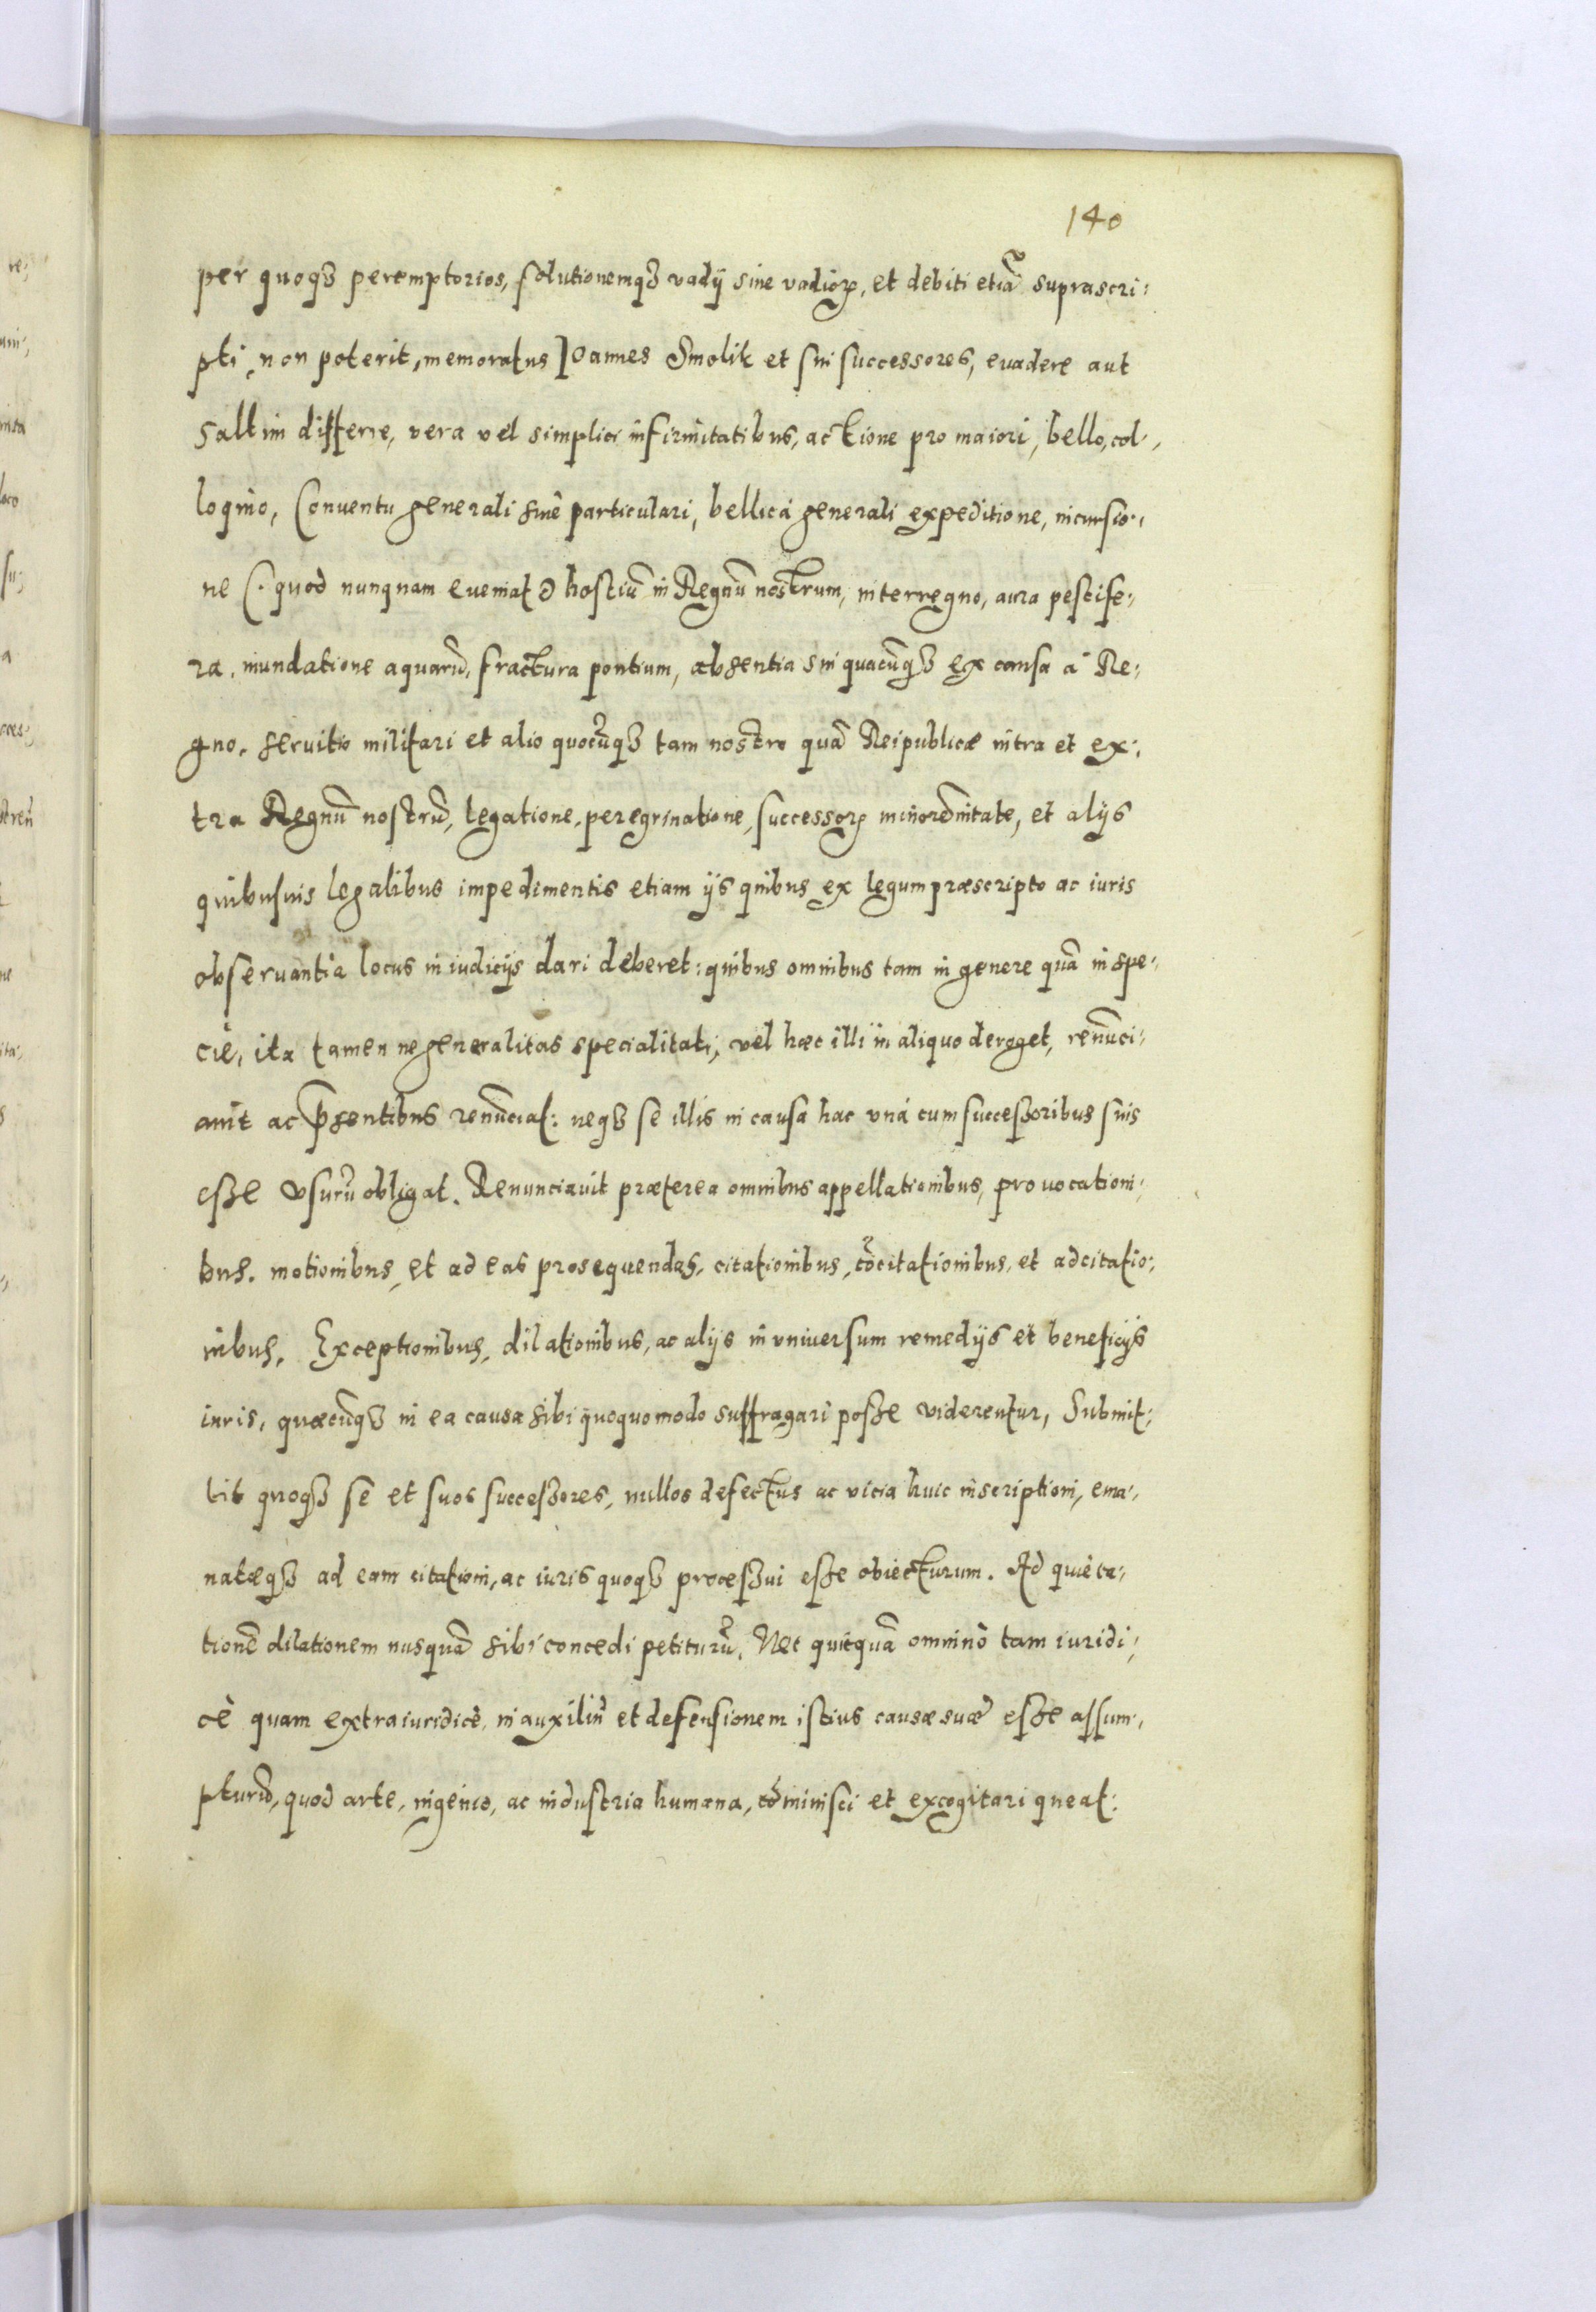 140
per quoqȝ peremptorios, solutionemqȝ vadij siue vadioꝝ, et debiti etiā suprascri⸗
pti, non poterit, memoratus Ioannes Smolik et sui successores, euadere aut
saltim differre, vera vel simplici infirmitatibus, actione pro maiori, bello, col⸗
loquio, Conuentu generali siuè particulari, bellicá generali expeditione, incursio⸗
ne (: quod nunquam eueniat :) hostiū in Regnū nostrum, interregno, aura pestife⸗
ra, inundatione aquarū, fractura pontium, absentia sui quacūqȝ ex causa á Re⸗
gno, seruitio militari et alio quocūqȝ tam nostro quā Reipublicæ intra et ex⸗
tra Regnū nostrū, legatione, peregrinatione, successoꝝ minorēnitate, et alijs
quibusuis legalibus impedimentis etiam ijs quibus ex legum præscripto ac iuris
obseruantia locus in iudicijs dari deberet: quibus omnibus tam in genere quā in spe⸗
cie, ita tamen ne generalitas specialitati, vel hæc illi in aliquo deroget, renūci⸗
auit ac p̄sentibus renūciat: neqȝ se illis in causa hac vná cum successoribus suis
esse vsurū obligat. Renunciauit præterea omnibus appellationibus, prouocationi⸗
bus, motionibus, et ad eas prosequendas, citationibus, cōcitationibus, et adcitatio⸗
nibus, Exceptionibus, dilationibus, ac alijs in vniuersum remedijs et beneficijs
iuris, quæcūqȝ in ea causa sibi quoquomodo suffragari posse viderentur, Submit⸗
tit quoqȝ se et suos successores, nullos defectus ac vicia huic inscriptioni, ema⸗
natæqȝ ad eam citationi, ac iuris quoqȝ processui esse obiecturum. Ad quieta⸗
tionē dilationem nusquā sibi concedi petiturū. Nec quicquā omninò tam iuridi⸗
cè quam extraiuridicè, in auxiliū et defensionem istius causæ suæ esse assum⸗
pturū, quod arte, ingenio, ac industria humana, cōminisci et excogitari queat: